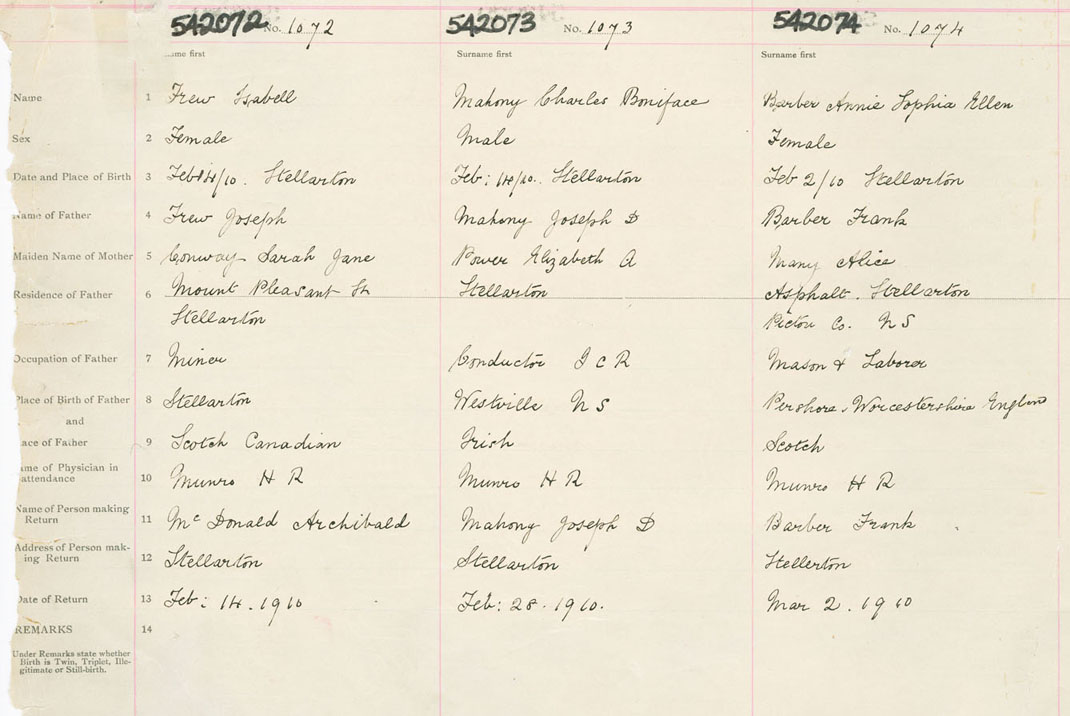 542072 No. 1072 542073 No. 1073 542074 No. 1074
me first Surname first Surname first
Name 1 Frew Isabell Mahony Charles Boniface Barber Annie Sophia Ellen
Sex 2 Female Male Female
Date and Place of Birth 3 Stellarton Feb: 14/10. Stellarton Feb 2/10 Stellarton
Name of Father 4 Frew Joseph Mahony Joseph D Barber Frank
Maiden Name of Mother 5 Conway Sarah Jane Power Elizabeth A Many Alice
Residence of Father 6 Mount Pleasant St Stellarton Asphalt. Stellarton
Stellarton Pictou Co. N S
Occupation of Father 7 Miner Conductor I C R Mason & Laborer
Place of Birth of Father 8 Stellarton Westville N S Pershore, Worcestershire England
and
ace of Father 9 Scotch Canadian Irish Scotch
ame of Physician in
attendance 10 Munro H R Munro H R Munro H R
Name of Person making
Return 11 Mc Donald Archibald Mahony Joseph D Barber Frank
Address of Person mak-
ing Return 12 Stellarton Stellarton Stellerton
Date of Return 13 Feb: 14. 1910 Feb: 28. 1910. Mar 2. 1910
REMARKS 14
Under Remarks state whether
Birth is Twin, Triplet, Ille-
gitimate or Still-birth.